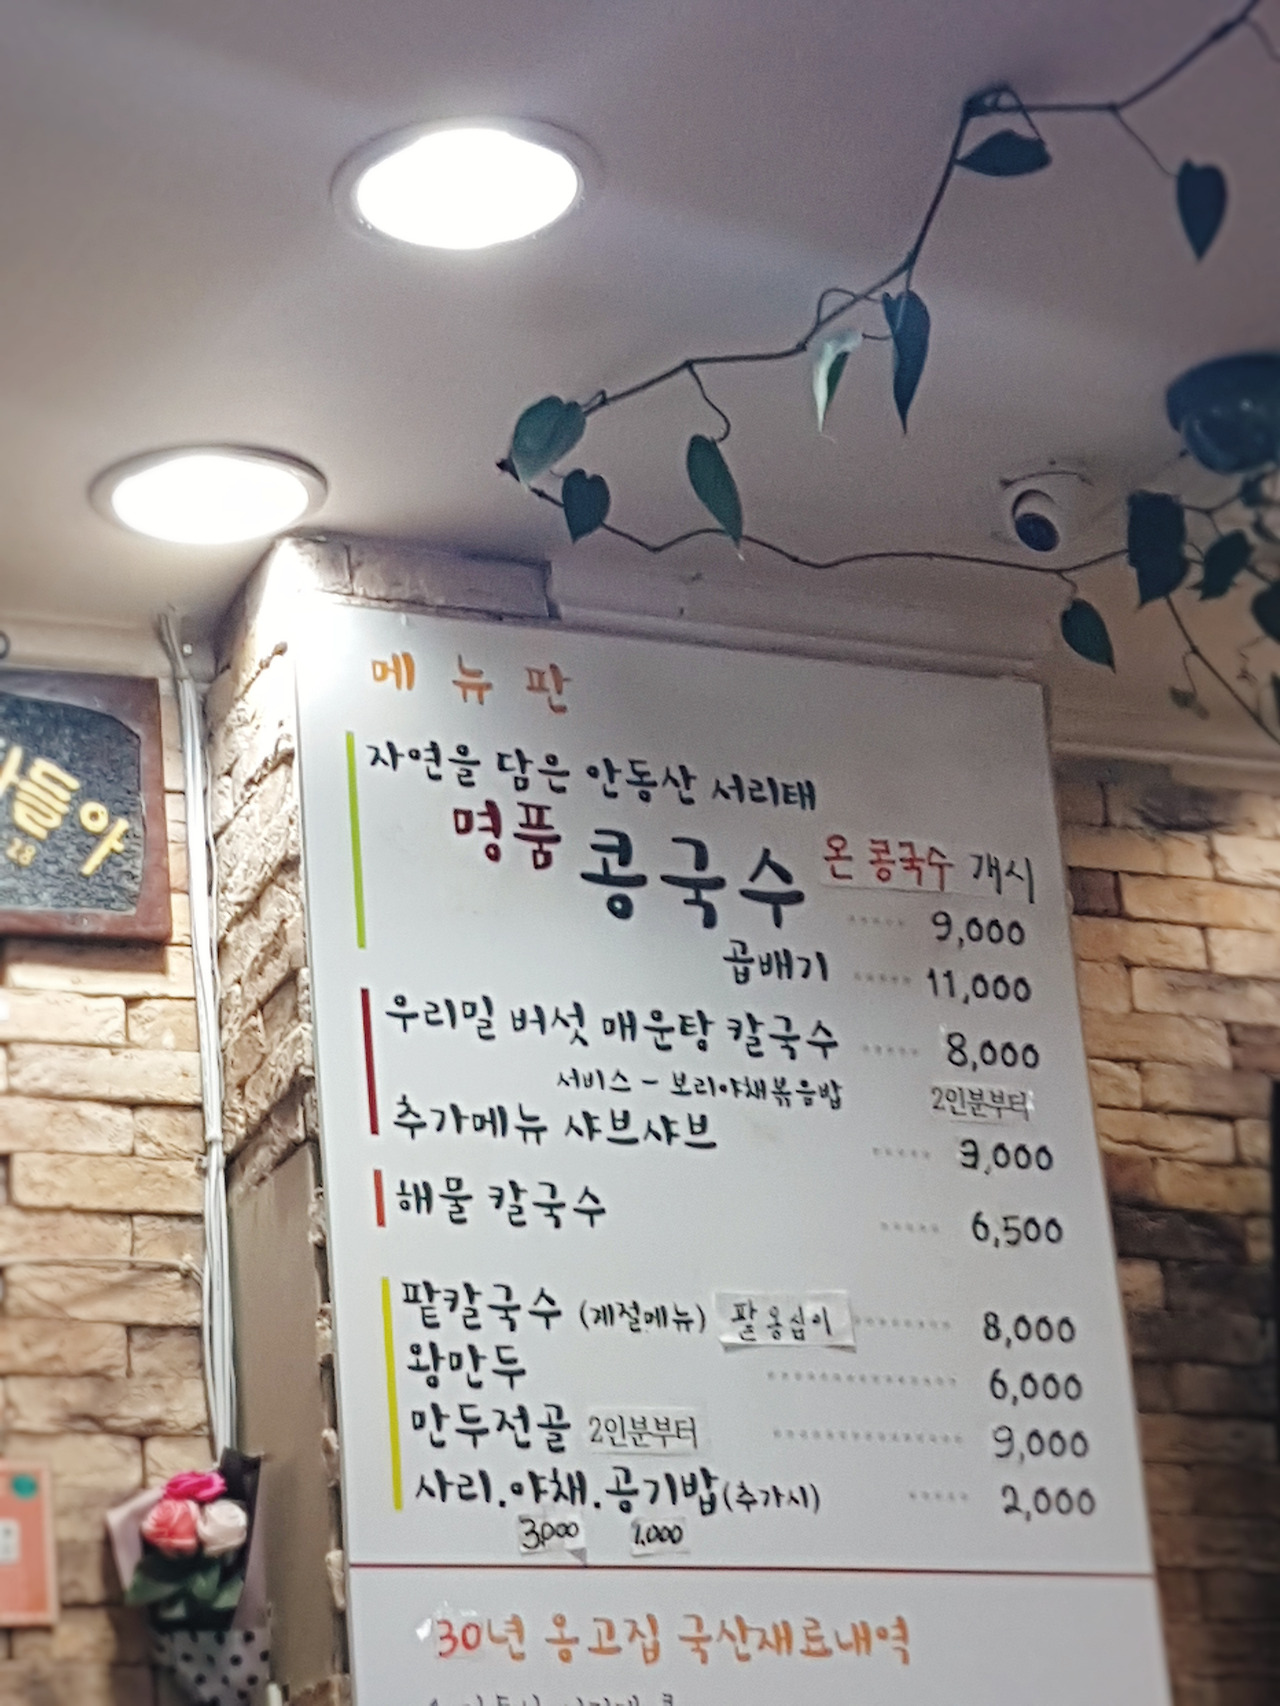 메뉴판
자연을 담은 안동산 서리태
명품 콩국수 온 콩국수 개시
9,000
곱배기 11,000
우리밀 버섯 매운탕 칼국수 8,000
서비스 - 보리야채볶음밥 2인분부터
추가메뉴 샤브샤브 3,000
해물 칼국수 6,500
팥칼국수 (계절메뉴) 팥옹심이 8,000
왕만두 6,000
만두전골 2인분부터 9,000
사리.야채.공기밥(추가시) 2,000
3,000 1,000
30년 옹고집 국산재료내역
들아
28